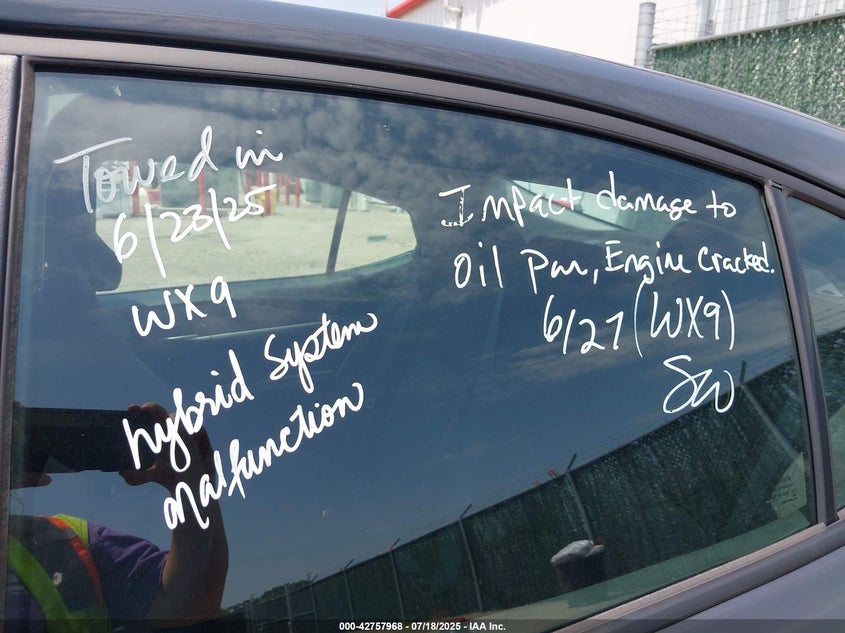 Towed in
6/23/25
WX9
hybrid System
malfunction
Impact damage to
oil pan, Engine Cracked.
6/27 (WX9)
SW
000-42757968 - 07/18/2025 - IAA Inc.